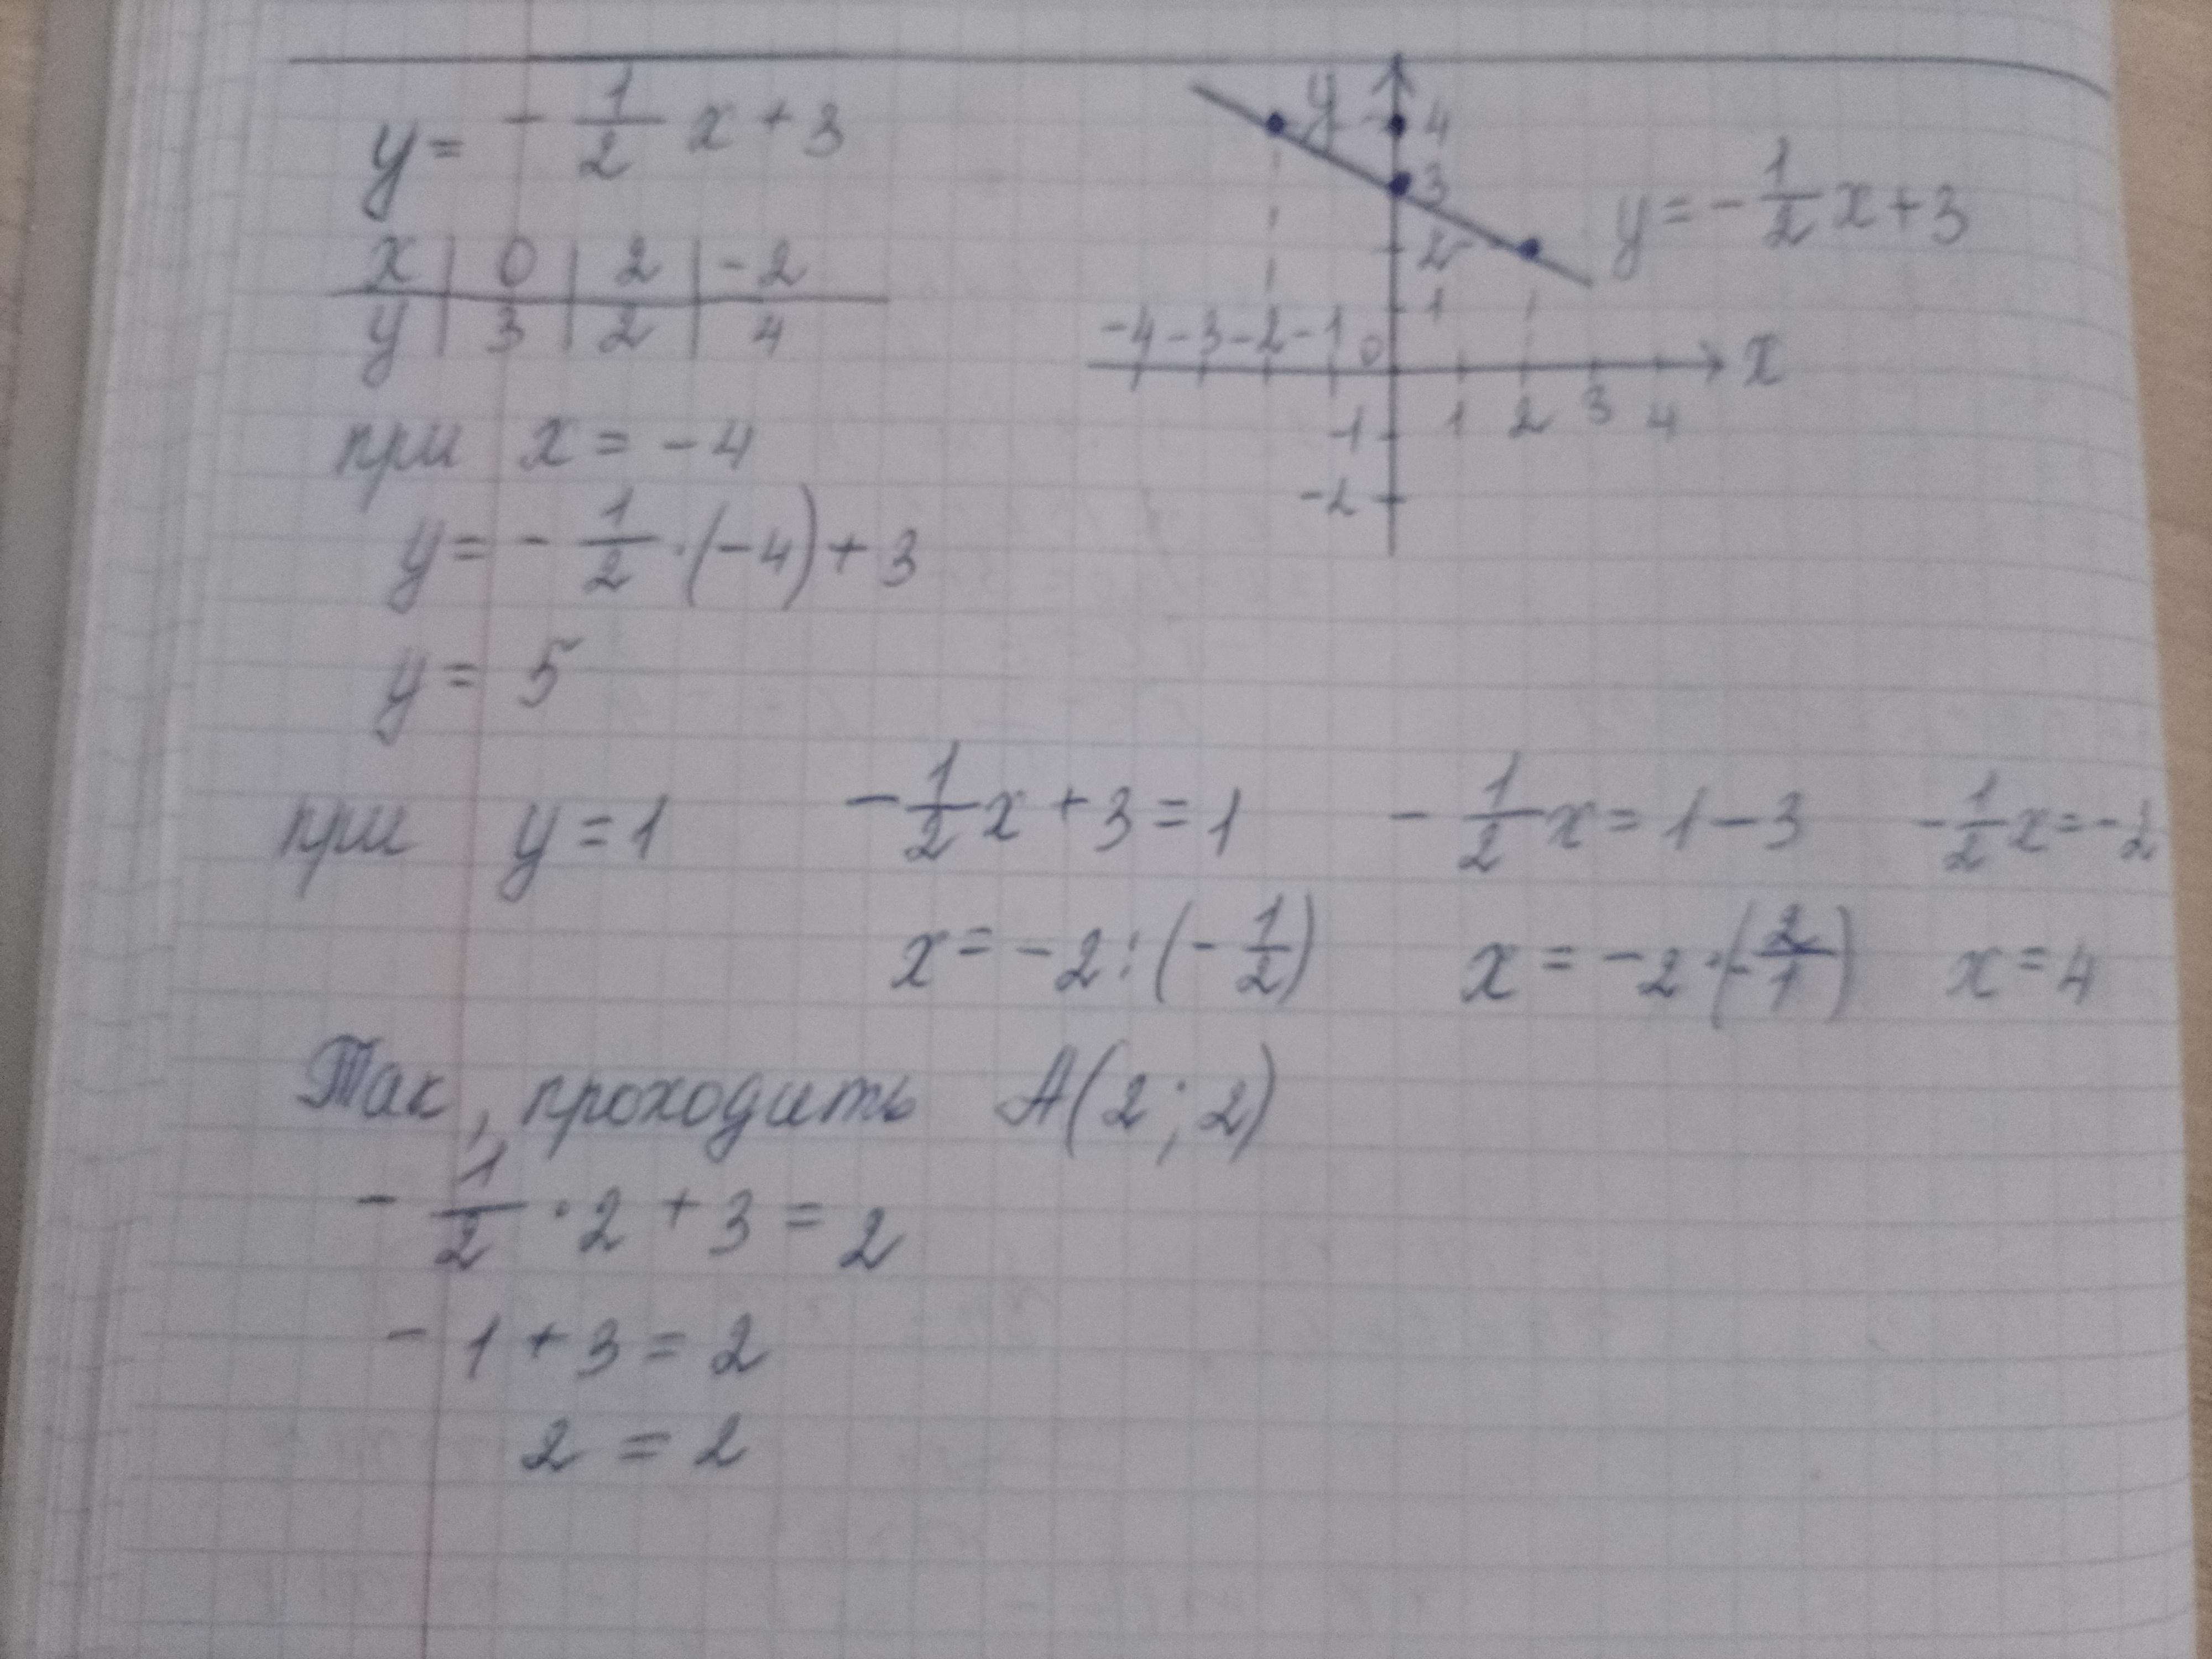 y = - 1/2 x + 3
x | 0 | 2 | -2
y | 3 | 2 | 4
y
4
3
2
1
y = - 1/2 x + 3
-4 -3 -2 -1 0 x
1 2 3 4
-1
-2
при x = -4
y = - 1/2 · (-4) + 3
y = 5
при y = 1 - 1/2 x + 3 = 1 - 1/2 x = 1 - 3 - 1/2 x = -2
x = -2 : (- 1/2) x = -2 · (- 2/1) x = 4
Так, проходить A(2; 2)
- 1/2 · 2 + 3 = 2
- 1 + 3 = 2
2 = 2